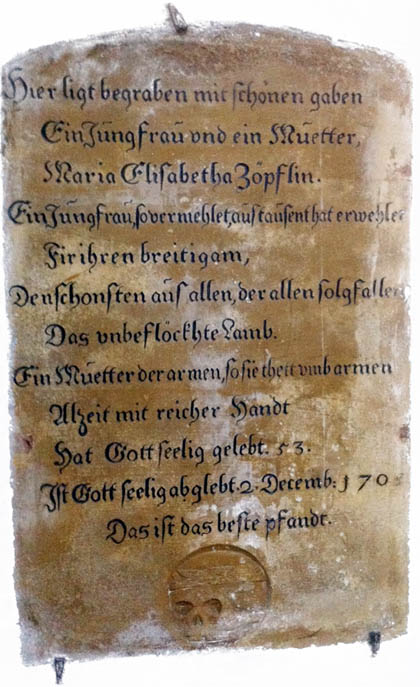 Hier ligt begraben mit schönen gaben
Ein Jungfraŭ vnd ein Müetter,
Maria Elisabetha Zöpflin.
Ein Jŭngfraŭ, so vermehlet, aŭs taŭsent hat erwehlet
Fir ihren breitigam,
Den schonsten aŭs allen, der allen solg fallen
Das vnbeflöckhte Lamb.
Ein Müetter der armen, so sie thett vmb armen
Alzeit mit reicher Handt
Hat Gott seelig gelebt. 53.
Ist Gott seelig abglebt. 2. Decemb: 170
Das ist das beste pfandt.